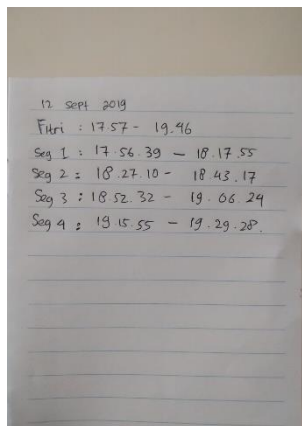 12 sept 2019
Fitri : 17.57 - 19.46
Seg 1 : 17.56.39 - 18.17.55
Seg 2 : 18.27.10 - 18.43.17
Seg 3 : 18.52.32 - 19.06.24
Seg 4 : 19.15.55 - 19.29.28.